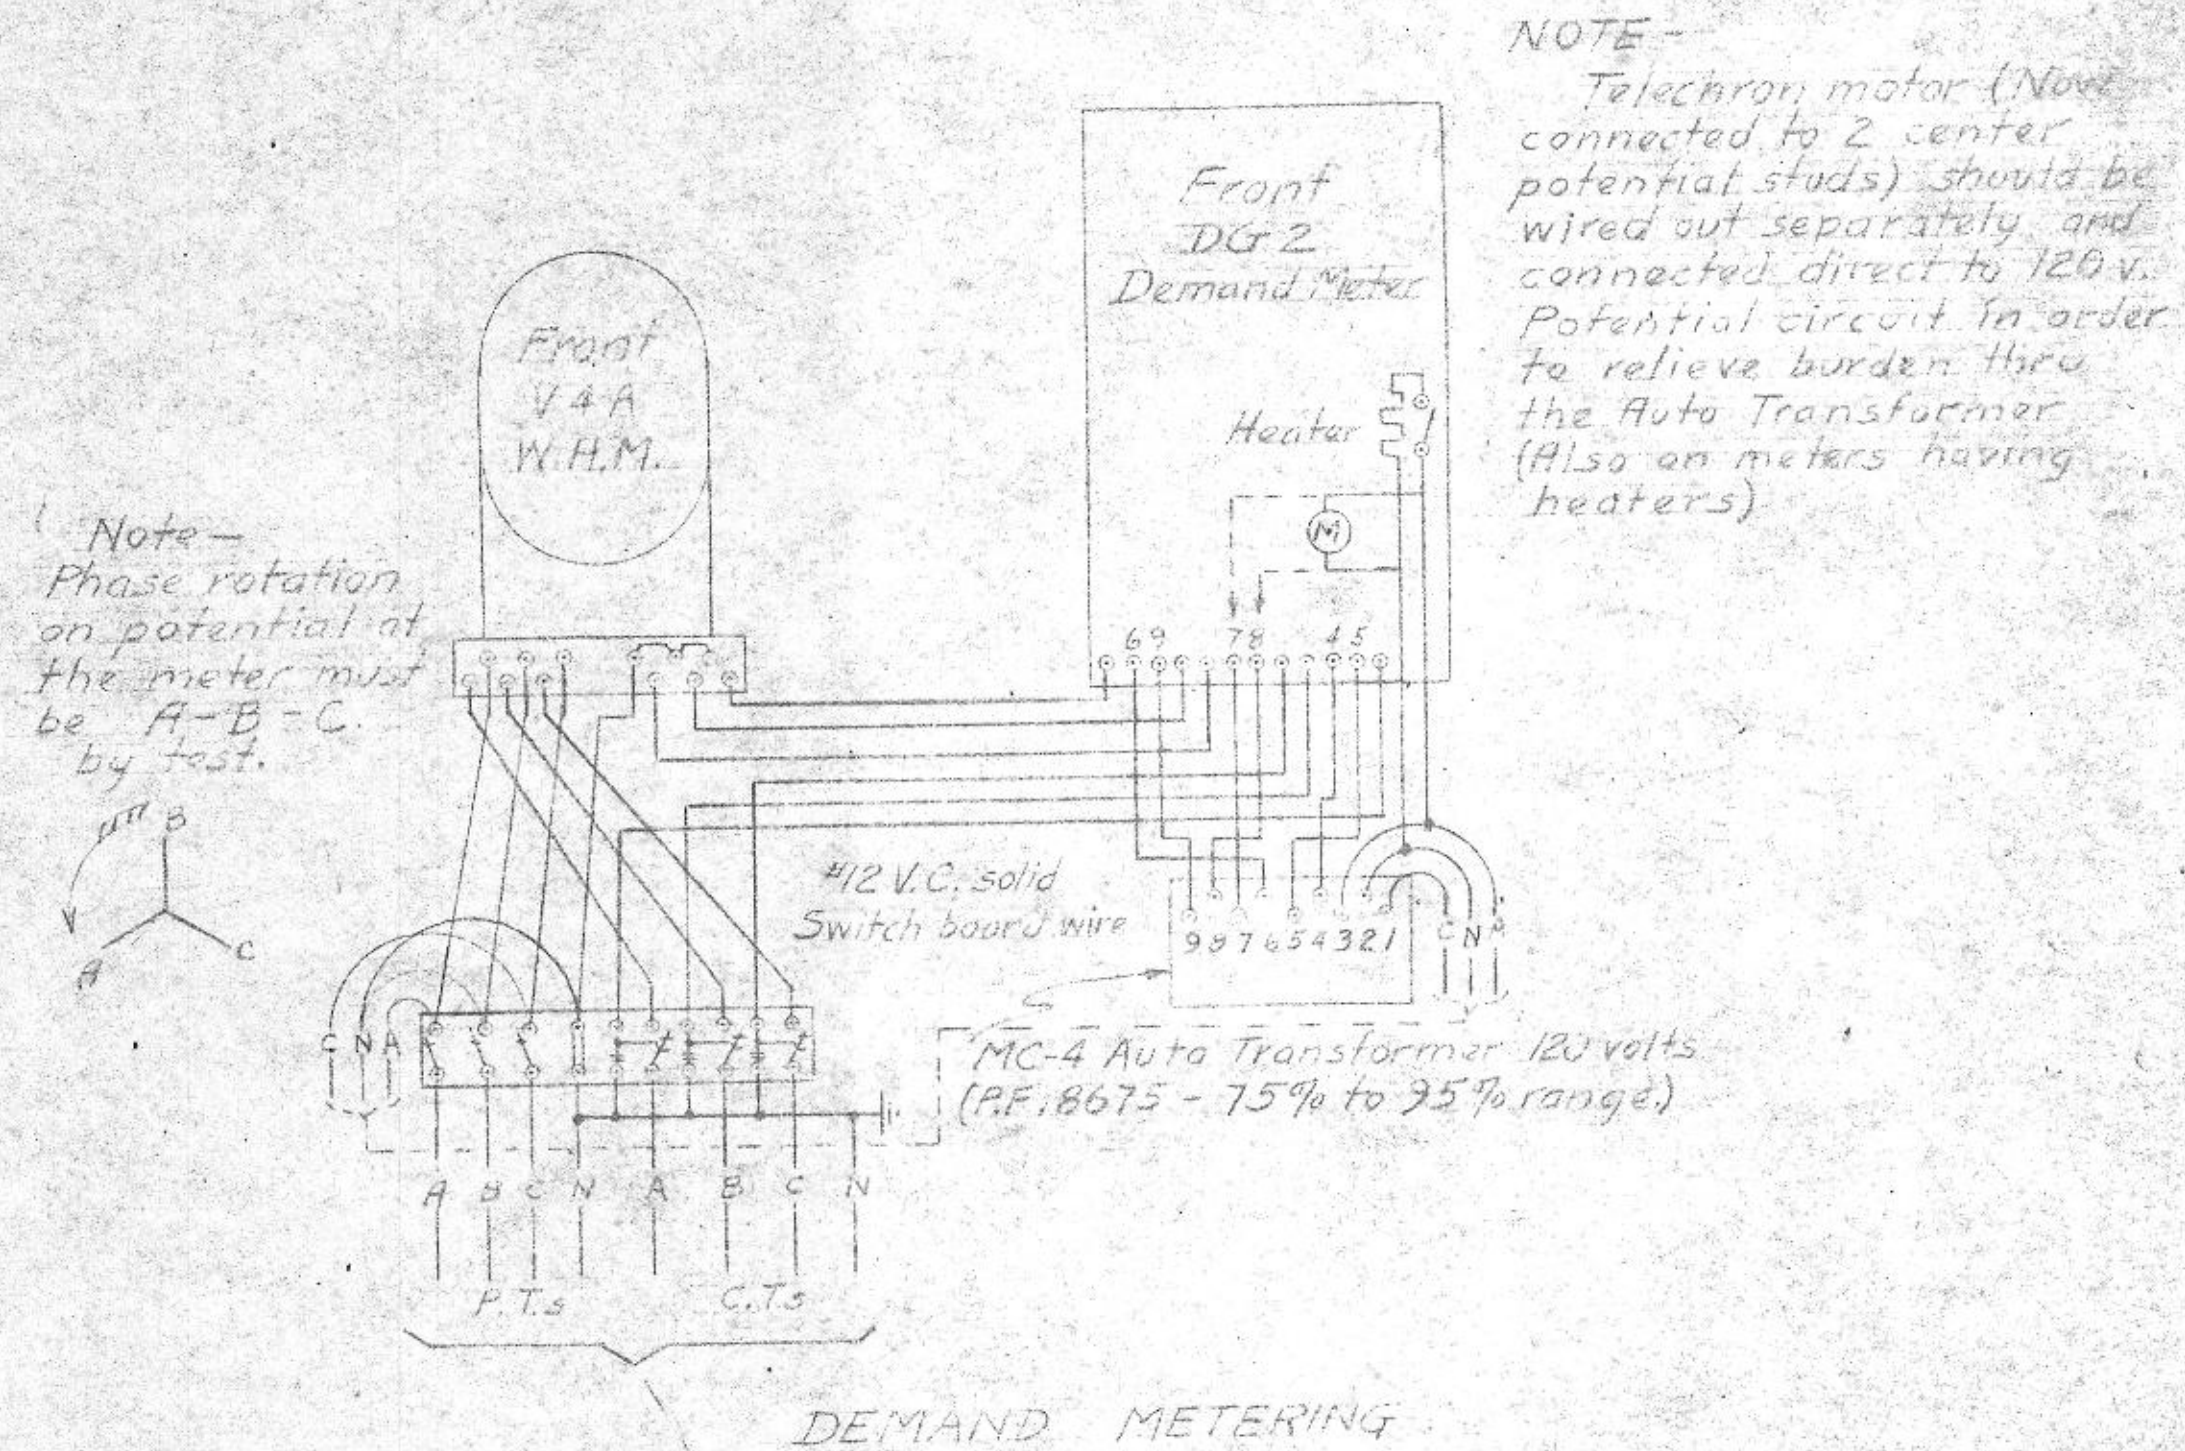 NOTE -
Telechron motor (Now
connected to 2 center
potential studs) should be
wired out separately and
connected direct to 120 v.
Potential circuit in order
to relieve burden thru
the Auto Transformer
(Also on meters having
heaters)
Front
DG 2
Demand Meter
Heater
M
Front
V 4 A
W.H.M.
Note -
Phase rotation
on potential at
the meter must
be A - B - C.
by test.
B
A
C
6 9 7 8 4 5
#12 V.C. solid
Switch board wire
9 8 7 6 5 4 3 2 1
C N A
C N A
MC-4 Auto Transformer 120 volts
(P.F. .8675 - 75% to 95% range.)
A B C N A B C N
P.T.s C.T.s
DEMAND METERING